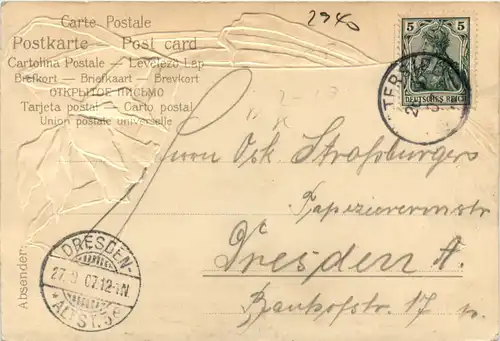 Carte Postale
2940
Postkarte — Post card
Cartolina Postale — Levelező Lap
Brefkort — Briefkaart — Brevkort
ОТКРЫТОЕ ПИСЬМО
Tarjeta postal — Carto postal
Union postale universelle
5 5
DEUTSCHES REICH
Herrn Osk. Straßburgers
Tapezierermstr
Dresden A.
17
Absender:
DRESDEN-
07.12-1N.
ALTST.